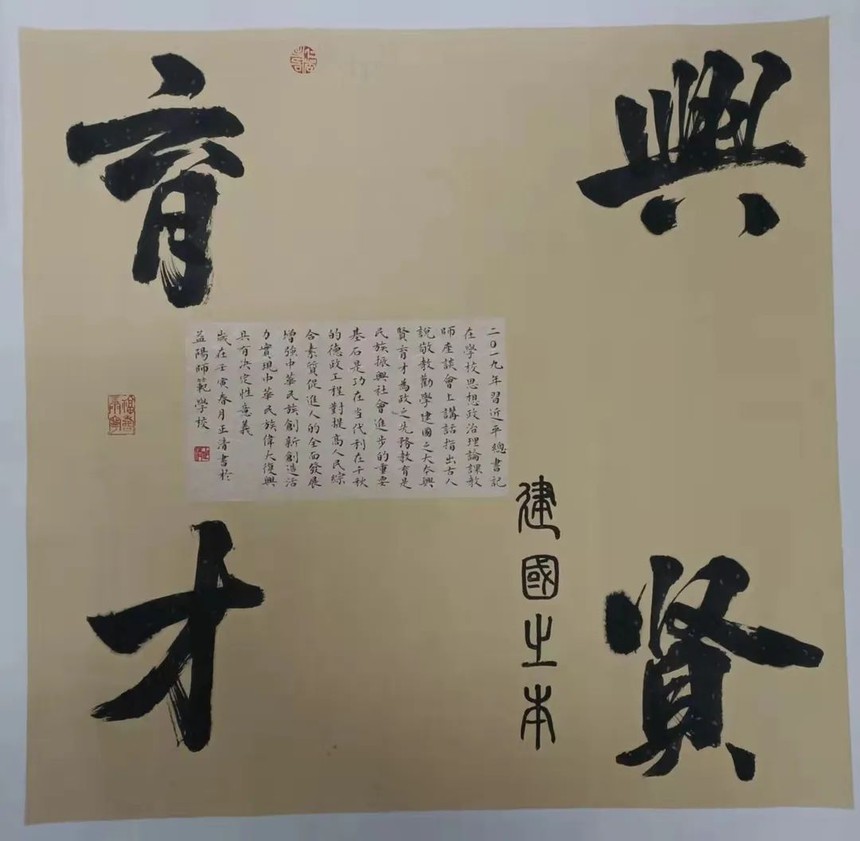 興賢
育才
建國之本
二〇一九年習近平總書記
在學校思想政治理論課教
師座談會上講話指出古人
說敬教勸學建國之大本興
賢育才為政之先務教育是
民族振興社會進步的重要
基石是功在當代利在千秋
的德政工程對提高人民綜
合素質促進人的全面發展
增強中華民族創新創造活
力實現中華民族偉大復興
具有決定性意義
歲在壬寅春月正清書於
益陽師範學校